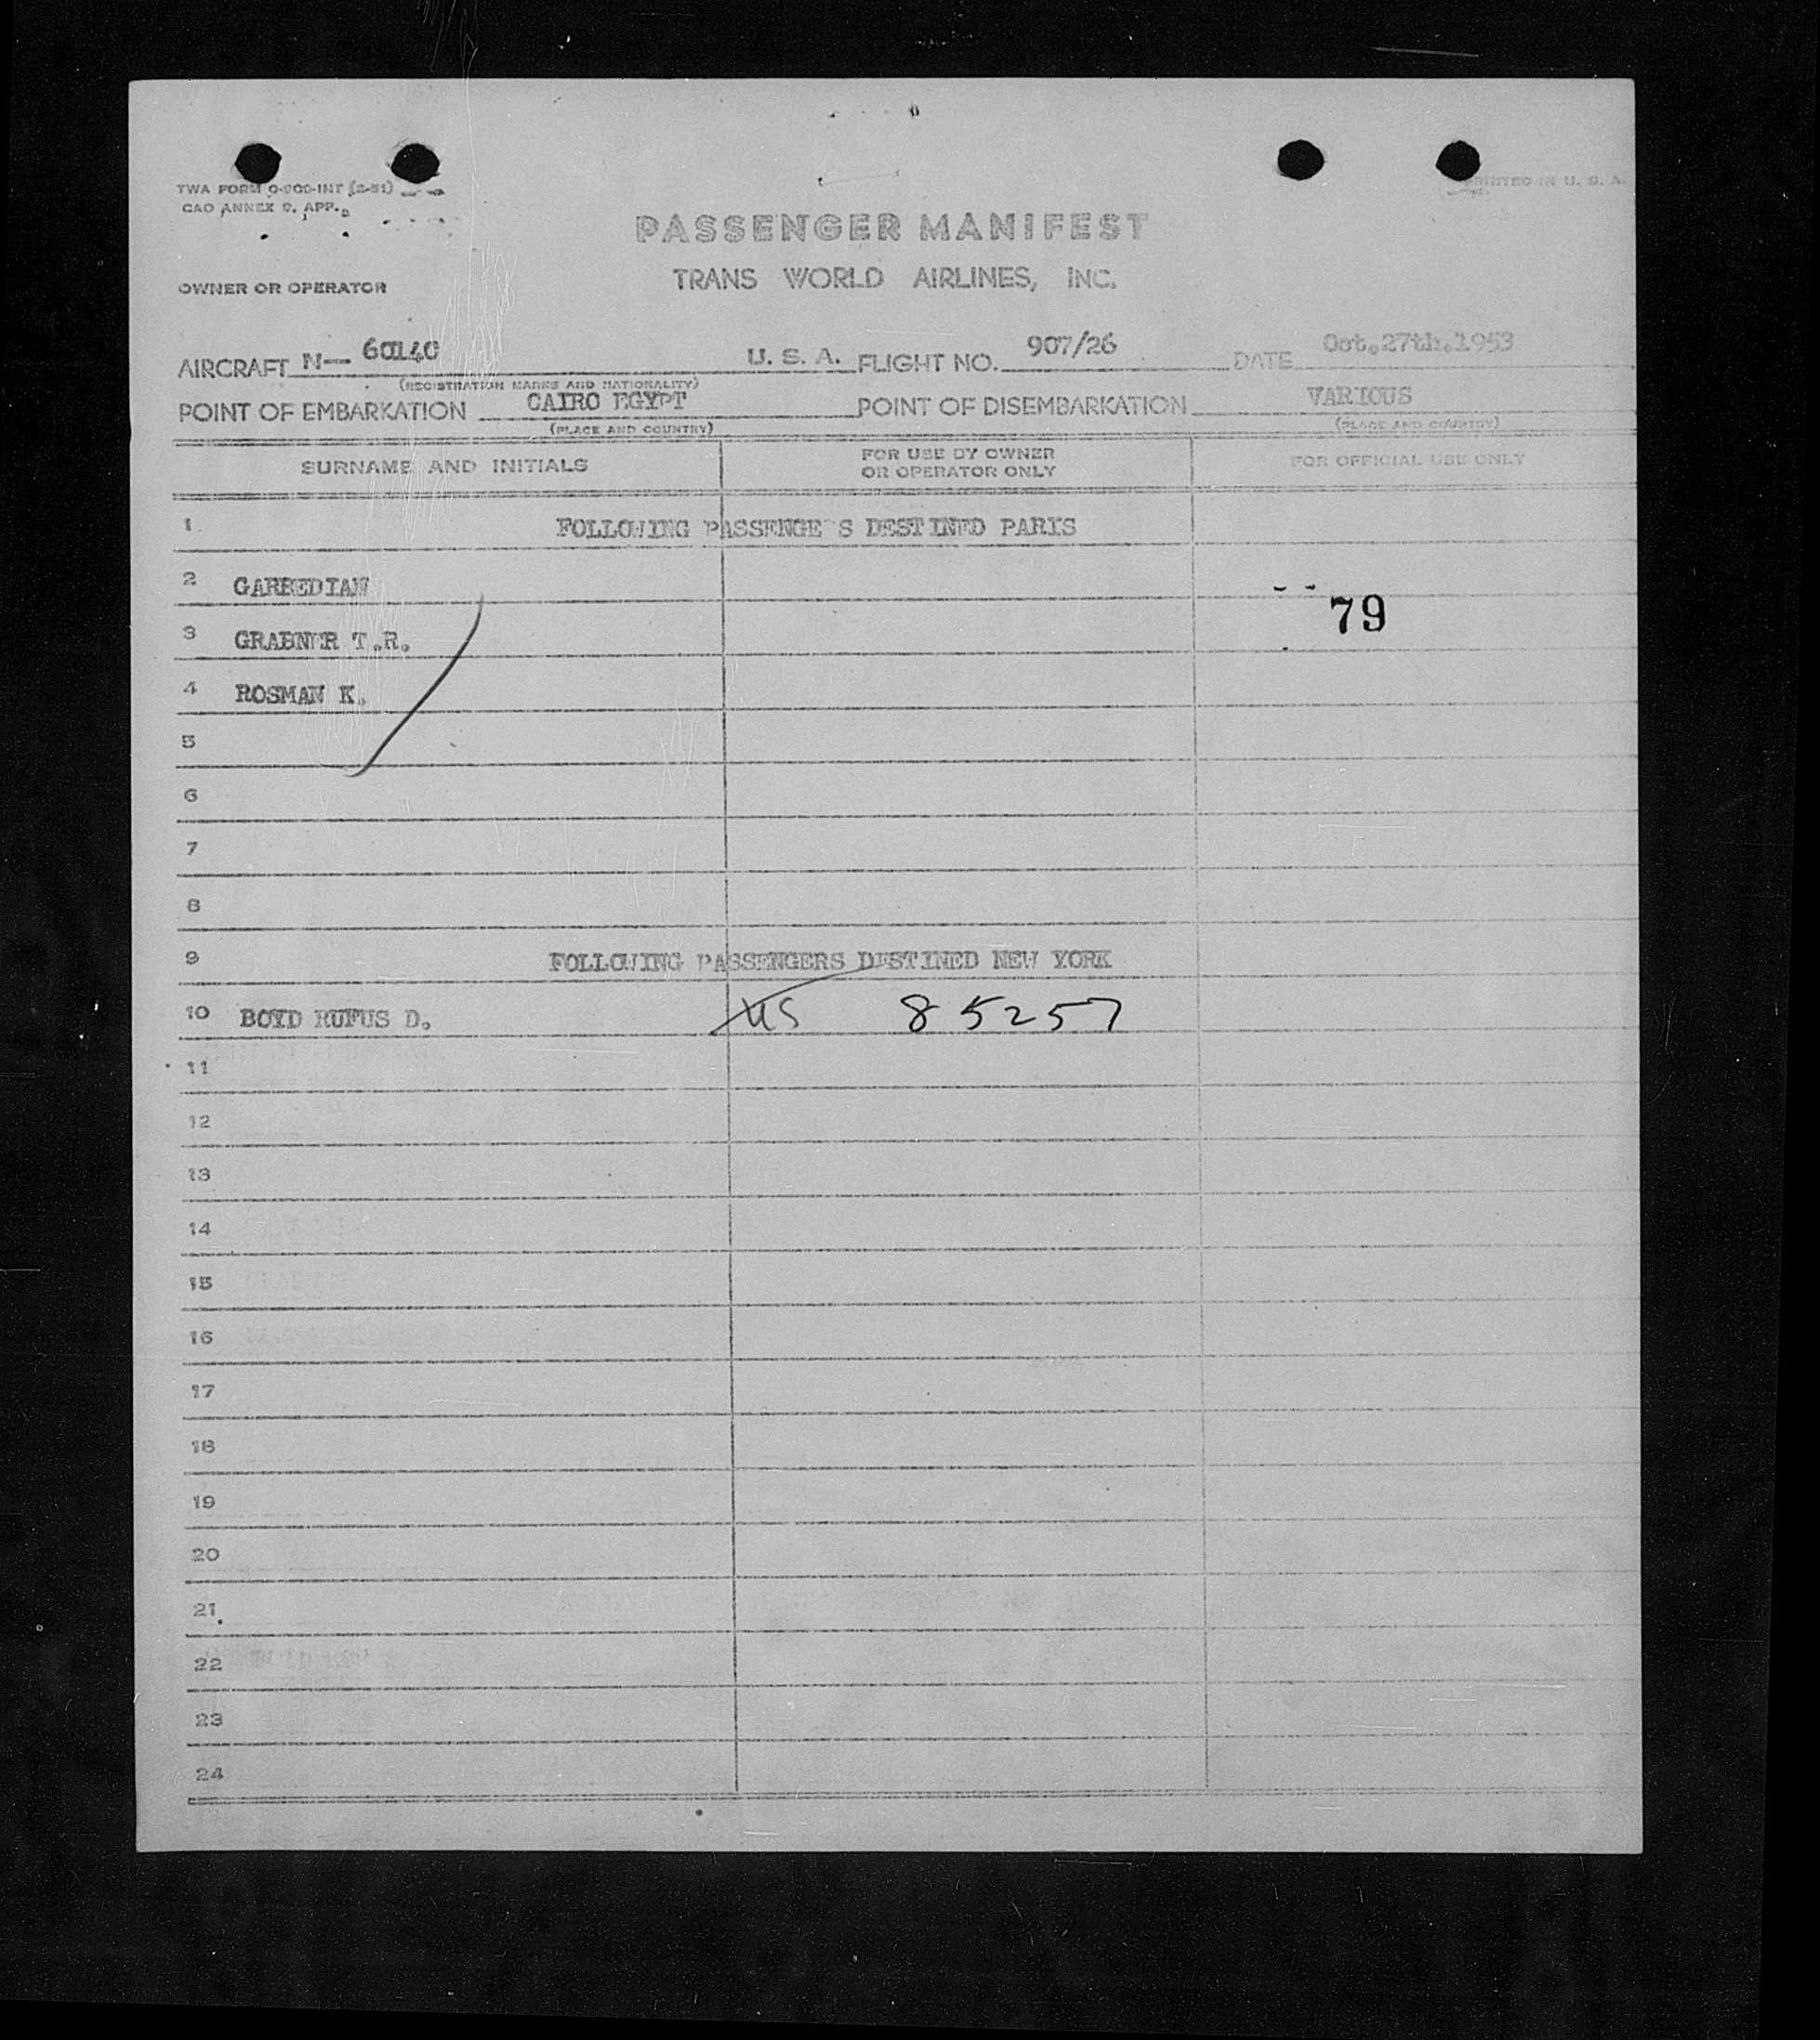 TWA FORM O-900-INT (2-51)
CAO ANNEX 9, APP.
PRINTED IN U. S. A.
PASSENGER MANIFEST
TRANS WORLD AIRLINES, INC.
OWNER OR OPERATOR
AIRCRAFT N— 60140 U. S. A. FLIGHT NO. 907/26 DATE Oct.27th.1953
(REGISTRATION MARKS AND NATIONALITY)
POINT OF EMBARKATION CAIRO EGYPT POINT OF DISEMBARKATION VARIOUS
(PLACE AND COUNTRY) (PLACE AND COUNTRY)
SURNAME AND INITIALS FOR USE BY OWNER OR OPERATOR ONLY FOR OFFICIAL USE ONLY
1 FOLLOWING PASSENGE S DESTINED PARIS
2 GARBEDIAN
79
3 GRABNER T.R.
4 ROSMAN K.
5
6
7
8
9 FOLLOWING PASSENGERS DESTINED NEW YORK
10 BOYD RUFUS D. US 85257
11
12
13
14
15
16
17
18
19
20
21
22
23
24